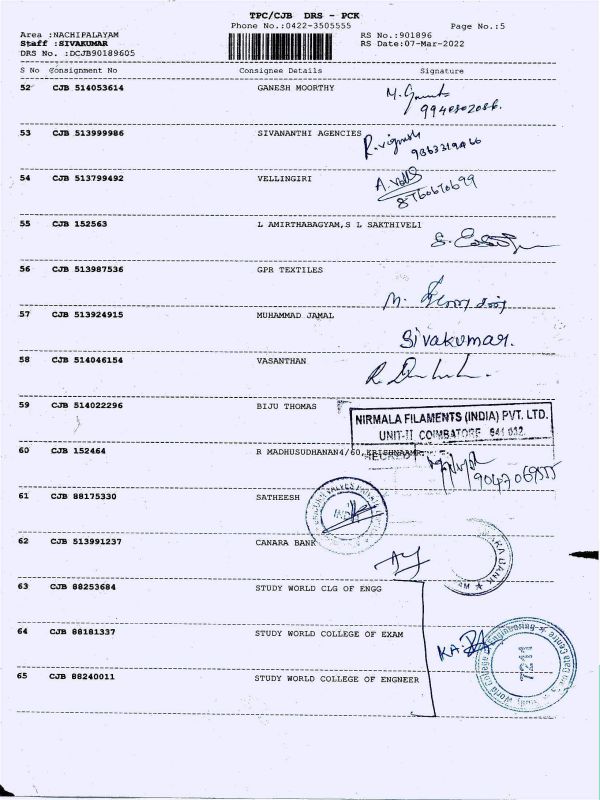 TPC/CJB DRS - PCK
Phone No.:0422-3505555
Page No.:5
Area :NACHIPALAYAM
RS No.:901896
Staff :SIVAKUMAR
RS Date:07-Mar-2022
DRS No. :DCJB90189605
S No Consignment No Consignee Details Signature
52 CJB 514053614 GANESH MOORTHY
9948802086.
53 CJB 513999986 SIVANANTHI AGENCIES
R.vignesh
9863319466
54 CJB 513799492 VELLINGIRI
8760670699
55 CJB 152563 L AMIRTHABAGYAM,S L SAKTHIVELI
56 CJB 513987536 GPR TEXTILES
57 CJB 513924915 MUHAMMAD JAMAL
Sivakumar.
58 CJB 514046154 VASANTHAN
59 CJB 514022296 BIJU THOMAS
NIRMALA FILAMENTS (INDIA) PVT. LTD.
UNIT-II COIMBATORE 641 032.
60 CJB 152464 R MADHUSUDHANAN4/60,KRISHNAAMR
9047069555
61 CJB 88175330 SATHEESH
INDIA
62 CJB 513991237 CANARA BANK
BANK
63 CJB 88253684 STUDY WORLD CLG OF ENGG
64 CJB 88181337 STUDY WORLD COLLEGE OF EXAM
7211
65 CJB 88240011 STUDY WORLD COLLEGE OF ENGNEER